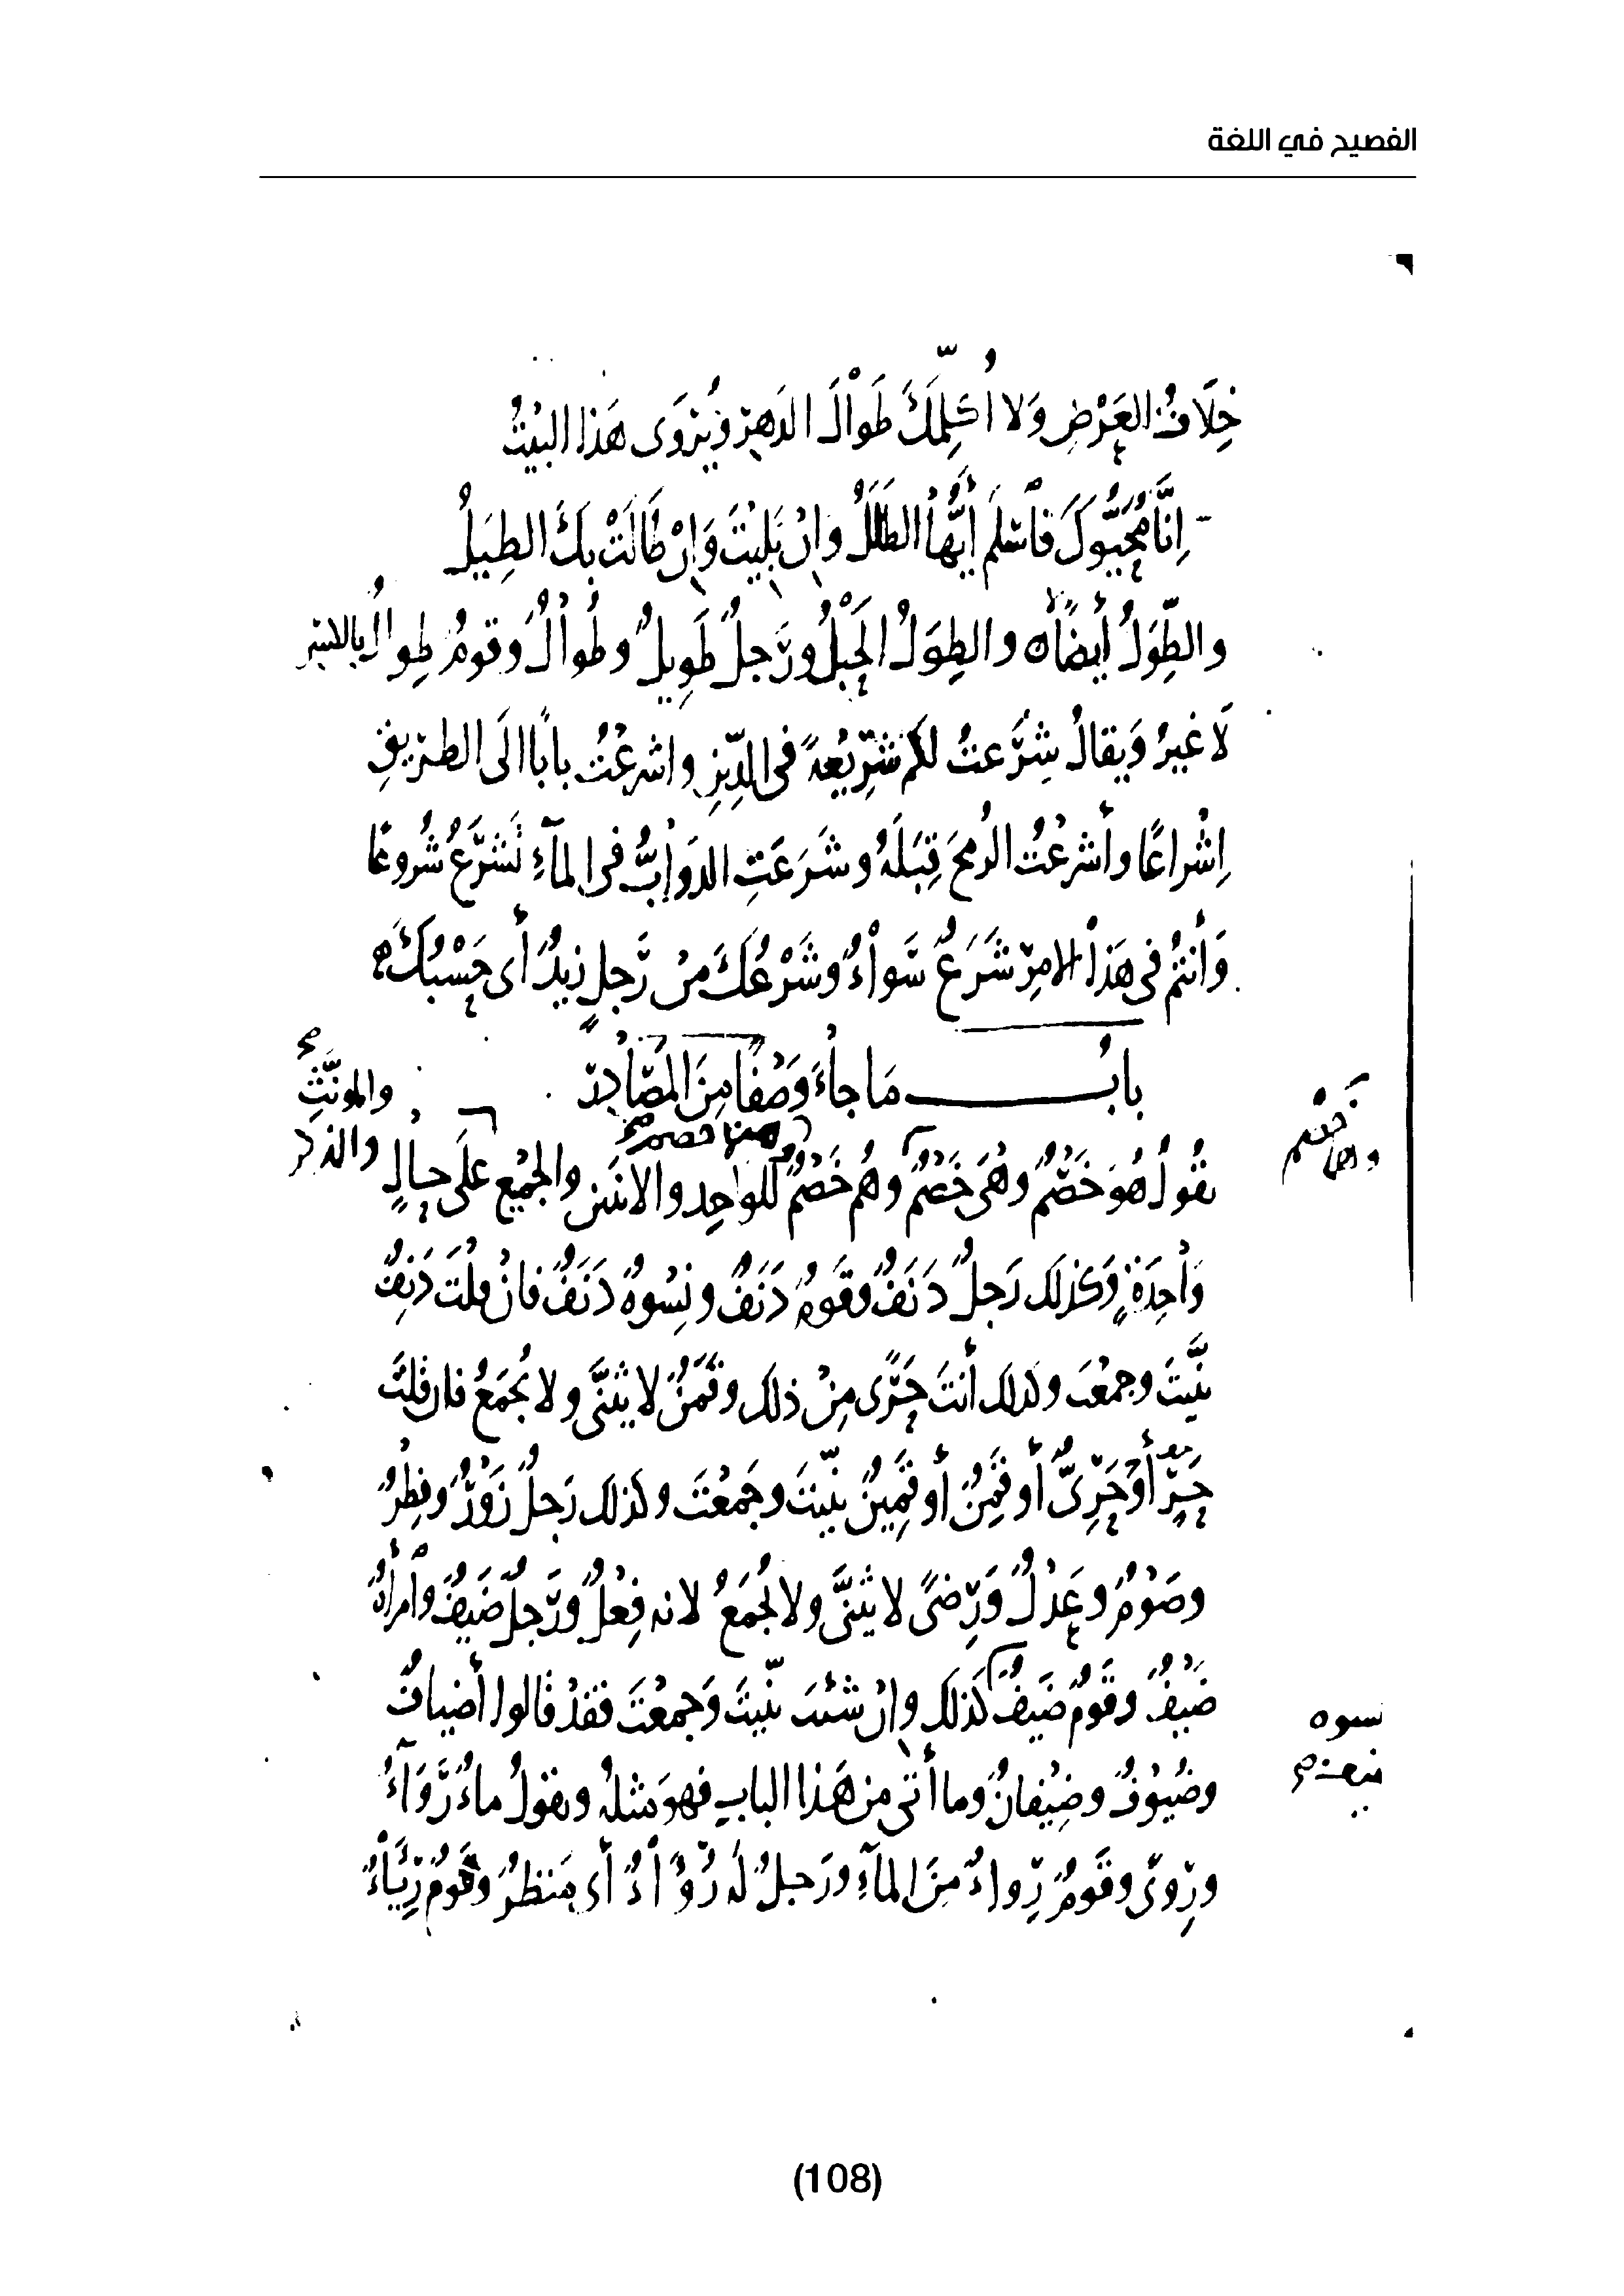 الفصيح في اللغة
خِلَافُ العَرْضِ وَلا أُكَلِّمُكَ طَوَالَ الدَهرِ وَيُرْوَى هَذا البَيْتُ
اِنَّا مُحَيُّوكَ فَاسْلَمْ أَيُّهَا الطَلَلُ وَاِنْ بَلِيْتَ وَاِنْ طَالَتْ بِكَ الطِيَلُ
والطِّوَلُ أَيضًا ه والطِوَلُ الحَبْلُ ورَجلٌ طَوِيلٌ وطُوالٌ وقومٌ طِوالٌ بالكسر
لَا غيرُ وَيقالُ شَرَعتُ لكم شَرِيْعةً في الدِّينِ واشرعْتُ بابًا الَى الطريقِ
اِشْراعًا وأَشرعْتُ الرُمحَ قِبَلَهُ وشَرَعَتِ الدَوَابُّ في المآءِ تَشرَعُ شُروعًا
وَأنتُم في هَذا الامرِ شَرَعٌ سَواءٌ وشَرْعُكَ مِنْ رَجلٍ زيدٌ أَي حَسْبُكَ ه
بابُ مَا جاءَ وَصْفًا مِنَ المَصَادِر
تقُولُ هُوَ خَصْمٌ وهْيَ خَصْمٌ وهُم خَصْمٌ للواحِد والاثنَين والجَمْيع علَى حالٍ
والمؤنَّثِ
والمذكر
وَاحِدَةٍ وَكذلك رَجلٌ دَنَفٌ وقَومٌ دَنَفٌ ونِسْوةٌ دَنَفٌ فانْ قلْتَ دَنِفٌ
ثنَّيتَ وجمعْتَ وكذلك أنتَ حَرًى مِنْ ذلك وقَمَنٌ لا يثنَّى ولا يُجمَعُ فان قلتَ
حَرٍ أَوْ حَرِىٌّ أو قَمِنٌ أو قَمِينٌ ثنّيتَ وجَمَعْتَ وكذلك رَجلٌ زَوْرٌ وفِطْرٌ
وصَوْمٌ وعَدْلٌ وَرِضىً لا يثنَّى ولا يُجمَعُ لانه فِعْلٌ ورَجلٌ ضَيفٌ وامرأةٌ
ضَيْفٌ وقَومٌ ضَيفٌ كَذلكَ وانْ شئتَ ثنّيتَ وَجمعْتَ فقَدْ قالوا أضيافٌ
نسوه
ضيف صح
وضُيُوفٌ وضِيْفانٌ وما أتى من هَذا البابِ فهوَ مثلهُ وتقولُ ماءٌ رَوَآءٌ
ورِوىً وقَومٌ رِواءٌ مِنَ المآءِ ورَجلٌ لَهُ رُوَاءٌ أَي مَنظرٌ وقَومٌ رِئَاءٌ
(108)